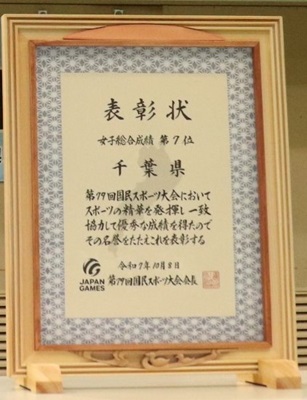 表彰状
女子総合成績 第7位
千葉県
第79回国民スポーツ大会において
スポーツの精華を発揮し一致
協力して優秀な成績を得たので
その名誉をたたえこれを表彰する
令和7年10月8日
JAPAN
GAMES
第79回国民スポーツ大会会長